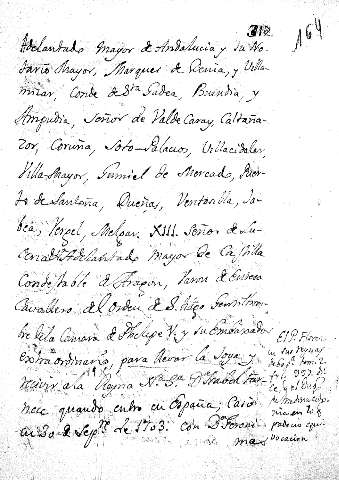 312
164
Adelantado mayor de Andalucia y su No-
tario Mayor, Marques de Denia, y Villa-
mizar, Conde de Sta Gadea, Buendia, y
Ampudia, Señor de Valde Caray, Caltaña-
zor, Coruña, Soto-Palacios, Villacidaler,
Villa-Mayor, Gumiel de Mercado, Puer-
to de Santoña, Dueñas, Ventosilla,
Melgar. XIII. Señor de Lu-
cena, Adelantado mayor de Castilla
Condestable de Aragon, Varon de
Cavallero del Orden de S. Tiago Gentilhom-
bre de la Camara de Phelipe V. y su Embaxador
extraordinario, para llevar la Joya, y
recivir a la Reyna Na Sa Da Isabel Far-
nece quando entro en España, Casó
en 30 de Septre de 1703. con Da
mas
El P.
en sus Reynas
to 2.
en el
padecio equi-
vocacion